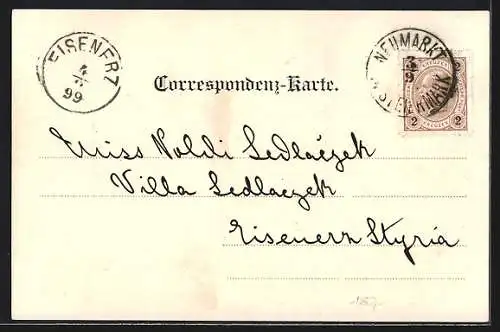 EISENERZ
4/9
99
NEUMARKT
3/9
STEIERMARK
2 2
Correspondenz-Karte.
Miss Poldi Sedlaczek
Villa Sedlaczek
Eisenerz Styria